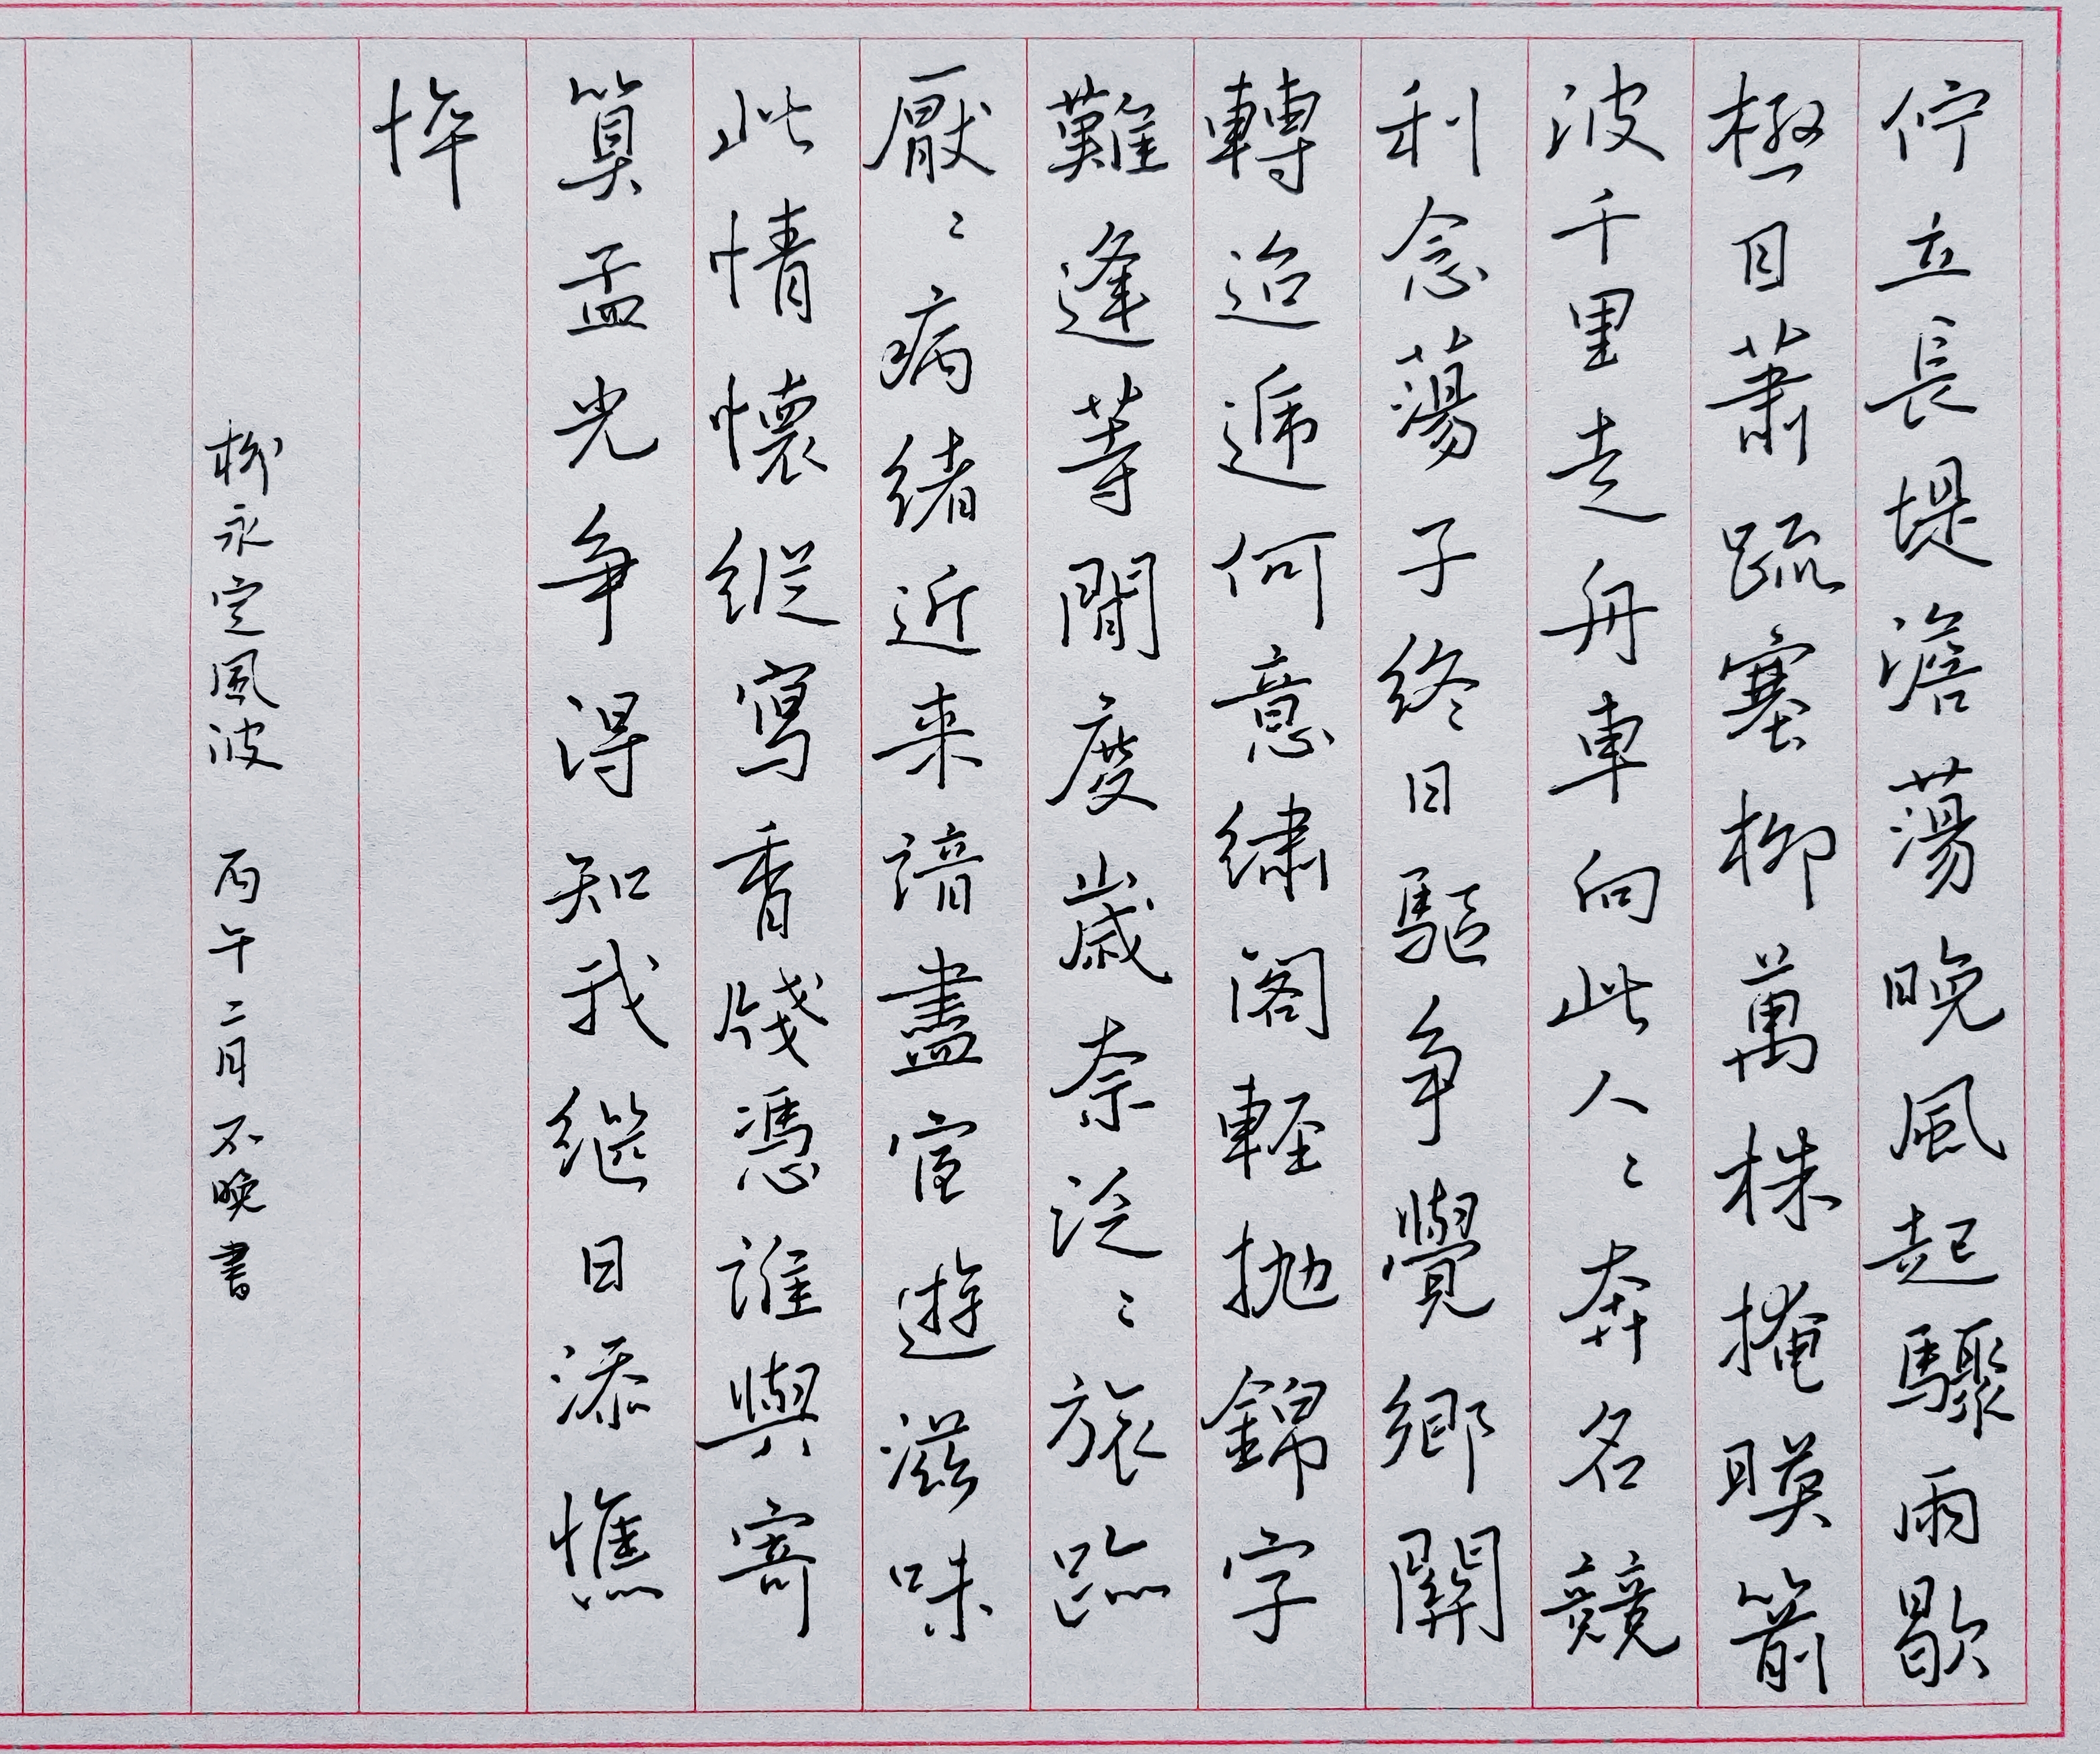 佇立長堤澹蕩晚風起驟雨歇
極目蕭疏塞柳萬株掩暎箭
波千里走舟車向此人〻奔名競
利念蕩子終日驅爭覺鄉關
轉迢遞何意繡閣輕抛錦字
難逢等閒度歲奈泛〻旅跡
厭〻病緒近来諳盡宦遊滋味
此情懷縱寫香牋憑誰與寄
算孟光爭得知我継日添憔
悴
柳永定風波 丙午二月不晚書